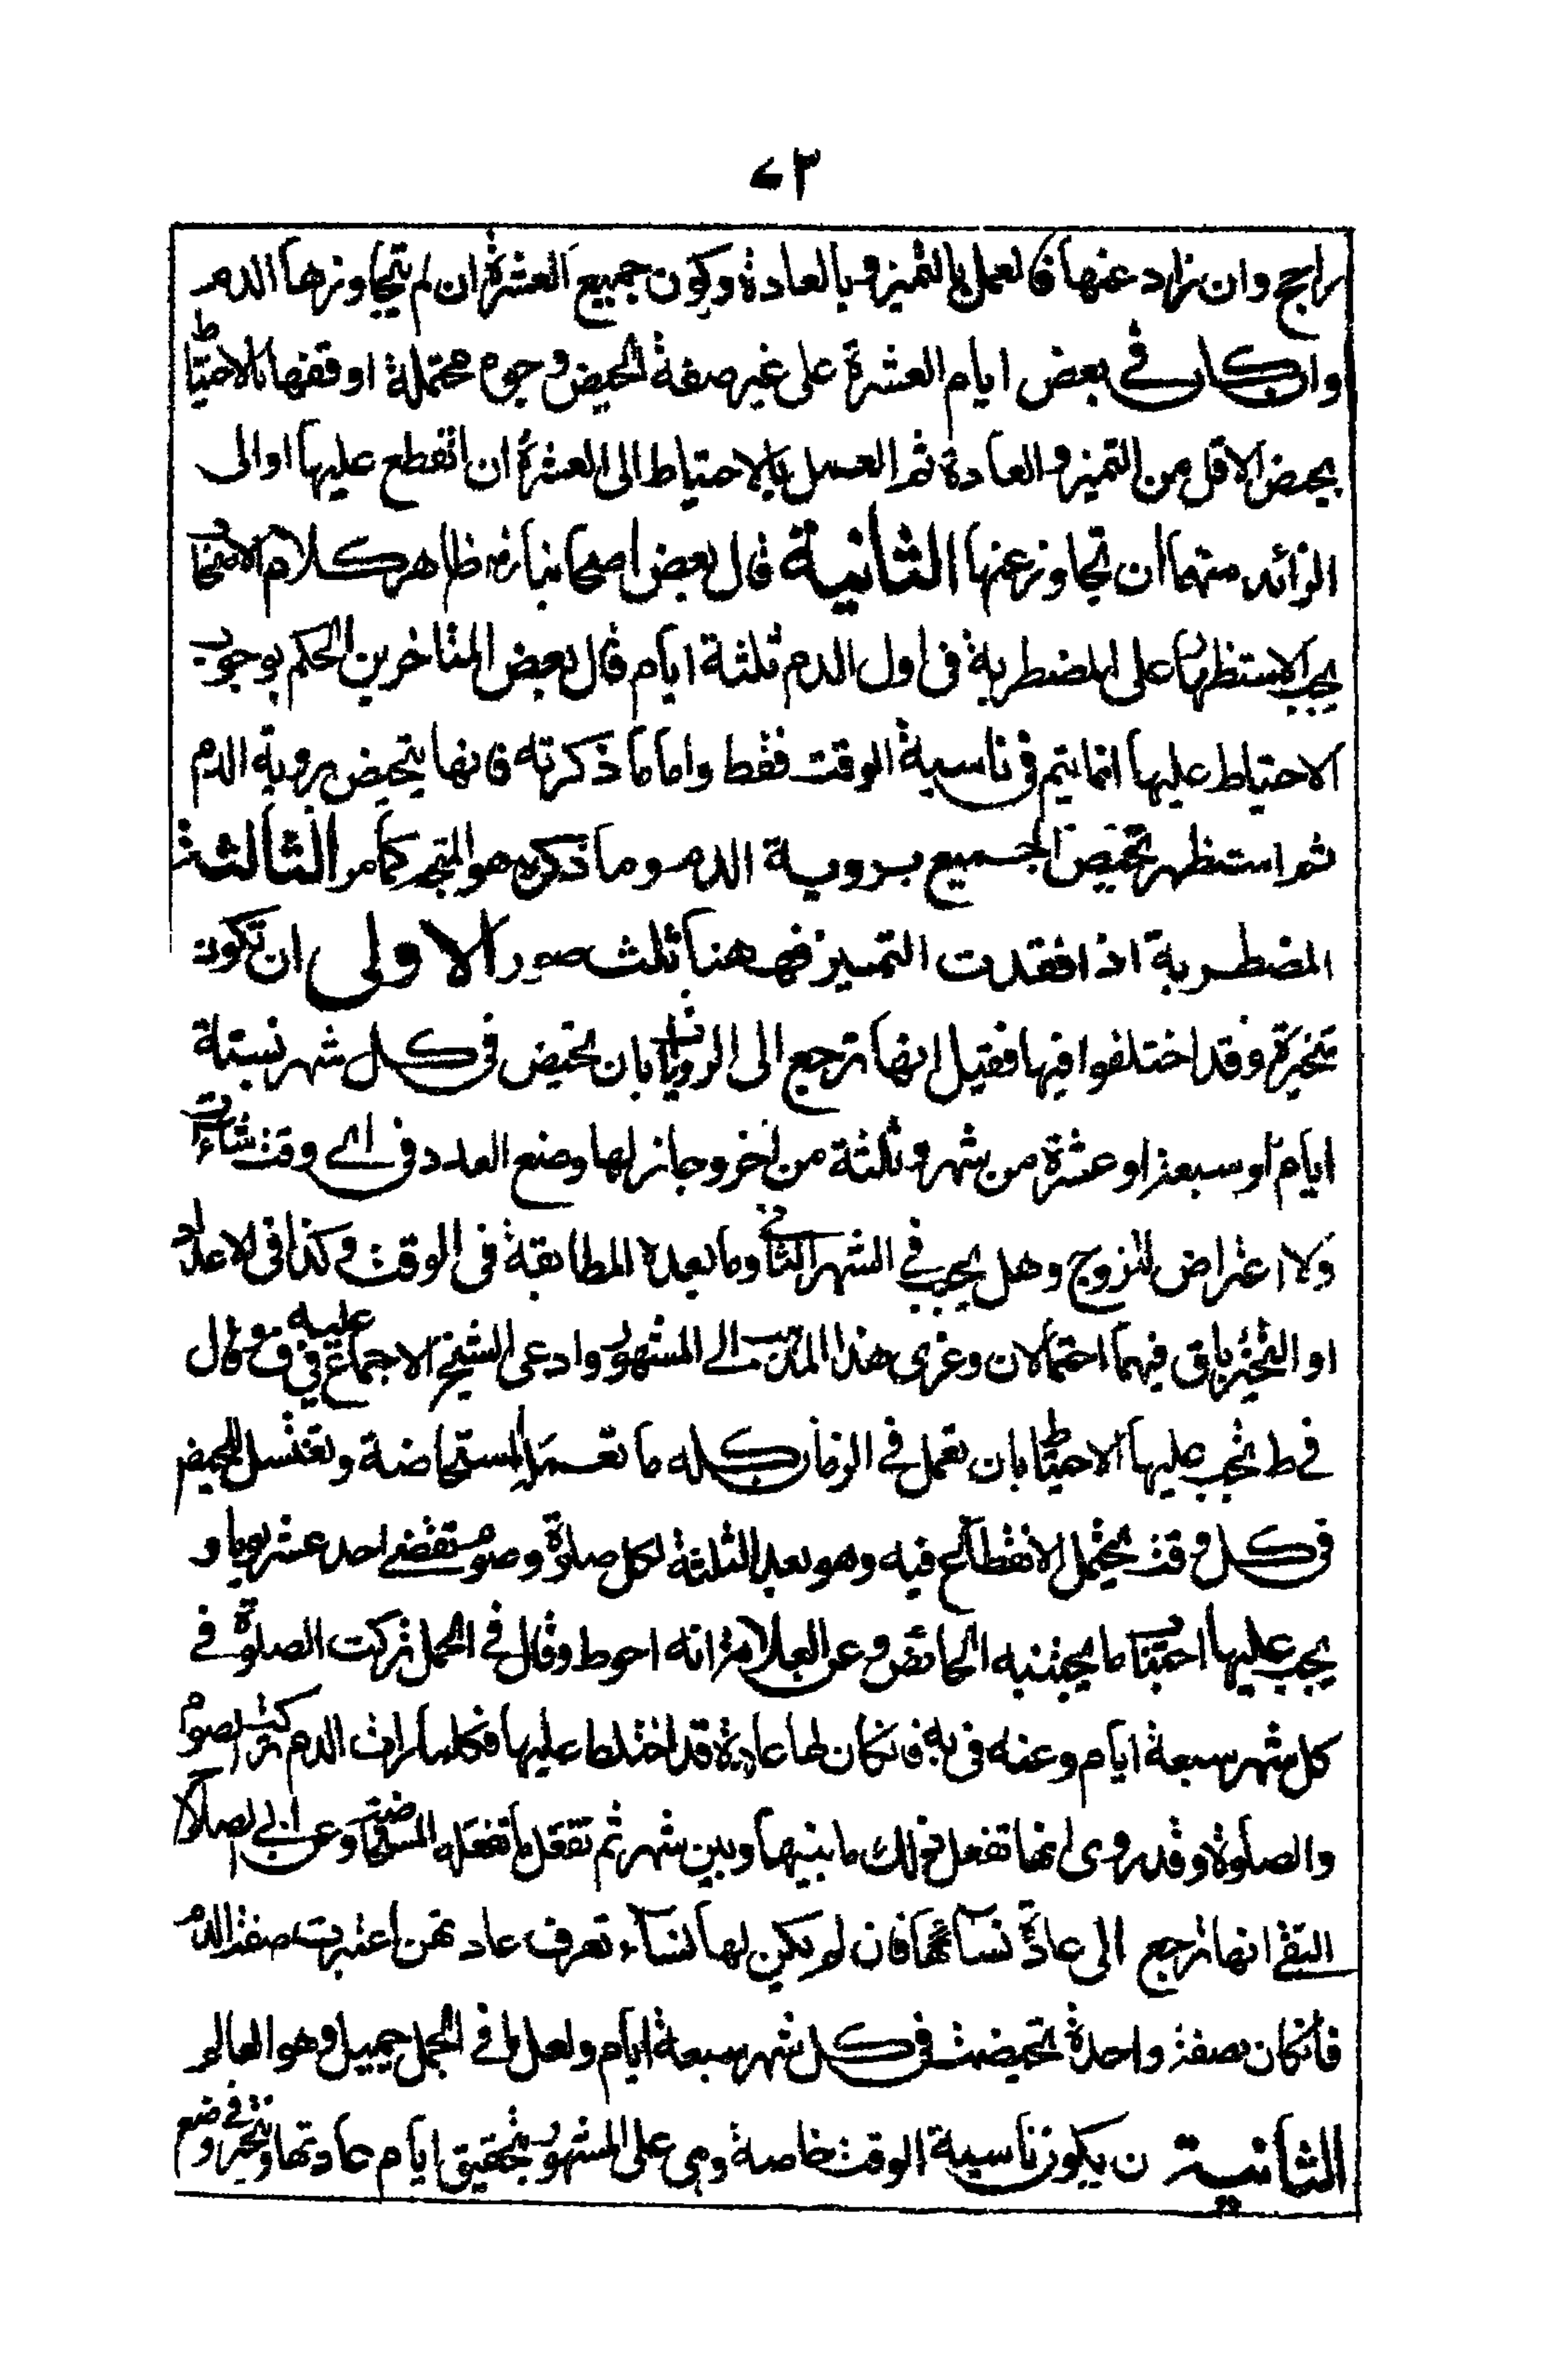 ٤٣
راجح وان زاد عنها فالعمل بالتميز وبالعادة وكون جميع العشرة ان لم يتجاوزها الدم
وان كان في بعض ايام العشرة على غير صفة الحيض وجوه محتملة اوفقها بالاحتياط
يحيض الاقل من التميز والعادة ثم العمل بالاحتياط الى العشرة ان انقطع عليها او الى
الزائد منهما ان تجاوز عنها الثانية قال بعض اصحابنا ظاهر كلام الاصحاب
يجب الاستظهار على المضطربة في اول الدم ثلثة ايام قال بعض المتاخرين الحكم بوجوب
الاحتياط عليها انما يتم في ناسية الوقت فقط واما ما ذكرته فانها يتحيض بروية الدم
ثم استظهر تحيض الجميع بروية الدم وما ذكره هو المتجه كما مر الثالثة
المضطربة اذا فقدت التميز فههنا ثلث صور الاولى ان تكون
متحيرة وقد اختلفوا فيها فقيل انها ترجع الى الروايات بان تحيض في كل شهر بستة
ايام او سبعة او عشرة من شهر وثلثة من اخر وجاز لها وضع العدد في اي وقت شاءت
ولا اعتراض للزوج وهل يجب في الشهر الثاني وما بعده المطابقة في الوقت وكذا في الاعداد
او التخير باق فيهما احتمالان وعزى هذا المذهب الى المشهور وادعى الشيخ الاجماع عليه في ف وقال
في ط تجب عليها الاحتياط بان تعمل في الزمان كله ما تعمله المستحاضة وتغتسل للحيض
في كل وقت يحتمل الانقطاع فيه وهو بعد الثلثة لكل صلوة وصوم تقضي احد عشر يوما و
يجب عليها اجتناب ما يجتنبه الحائض وعن العلامة انه احوط وقال في الجمل تركت الصلوة في
كل شهر سبعة ايام وعنه في يه فان كان لها عادة قد اختلط عليها فكلما رات الدم تركت الصوم
والصلوة وقد روى انها تفعل ذلك ما بينها وبين شهر ثم تفعل ما تفعله المستحاضة وعن ابي الصلاح
التقي انها ترجع الى عادة نسائها فان لم يكن لها نساء تعرف عادتهن اعتبرت صفة الدم
فان كان بصفة واحدة تحيضت في كل شهر سبعة ايام ولعل ما في الجمل جميل وهو العالم
الثانية ن يكون ناسية الوقت خاصة وهي على المشهور تحقيق ايام عادتها وتتخير في وضع